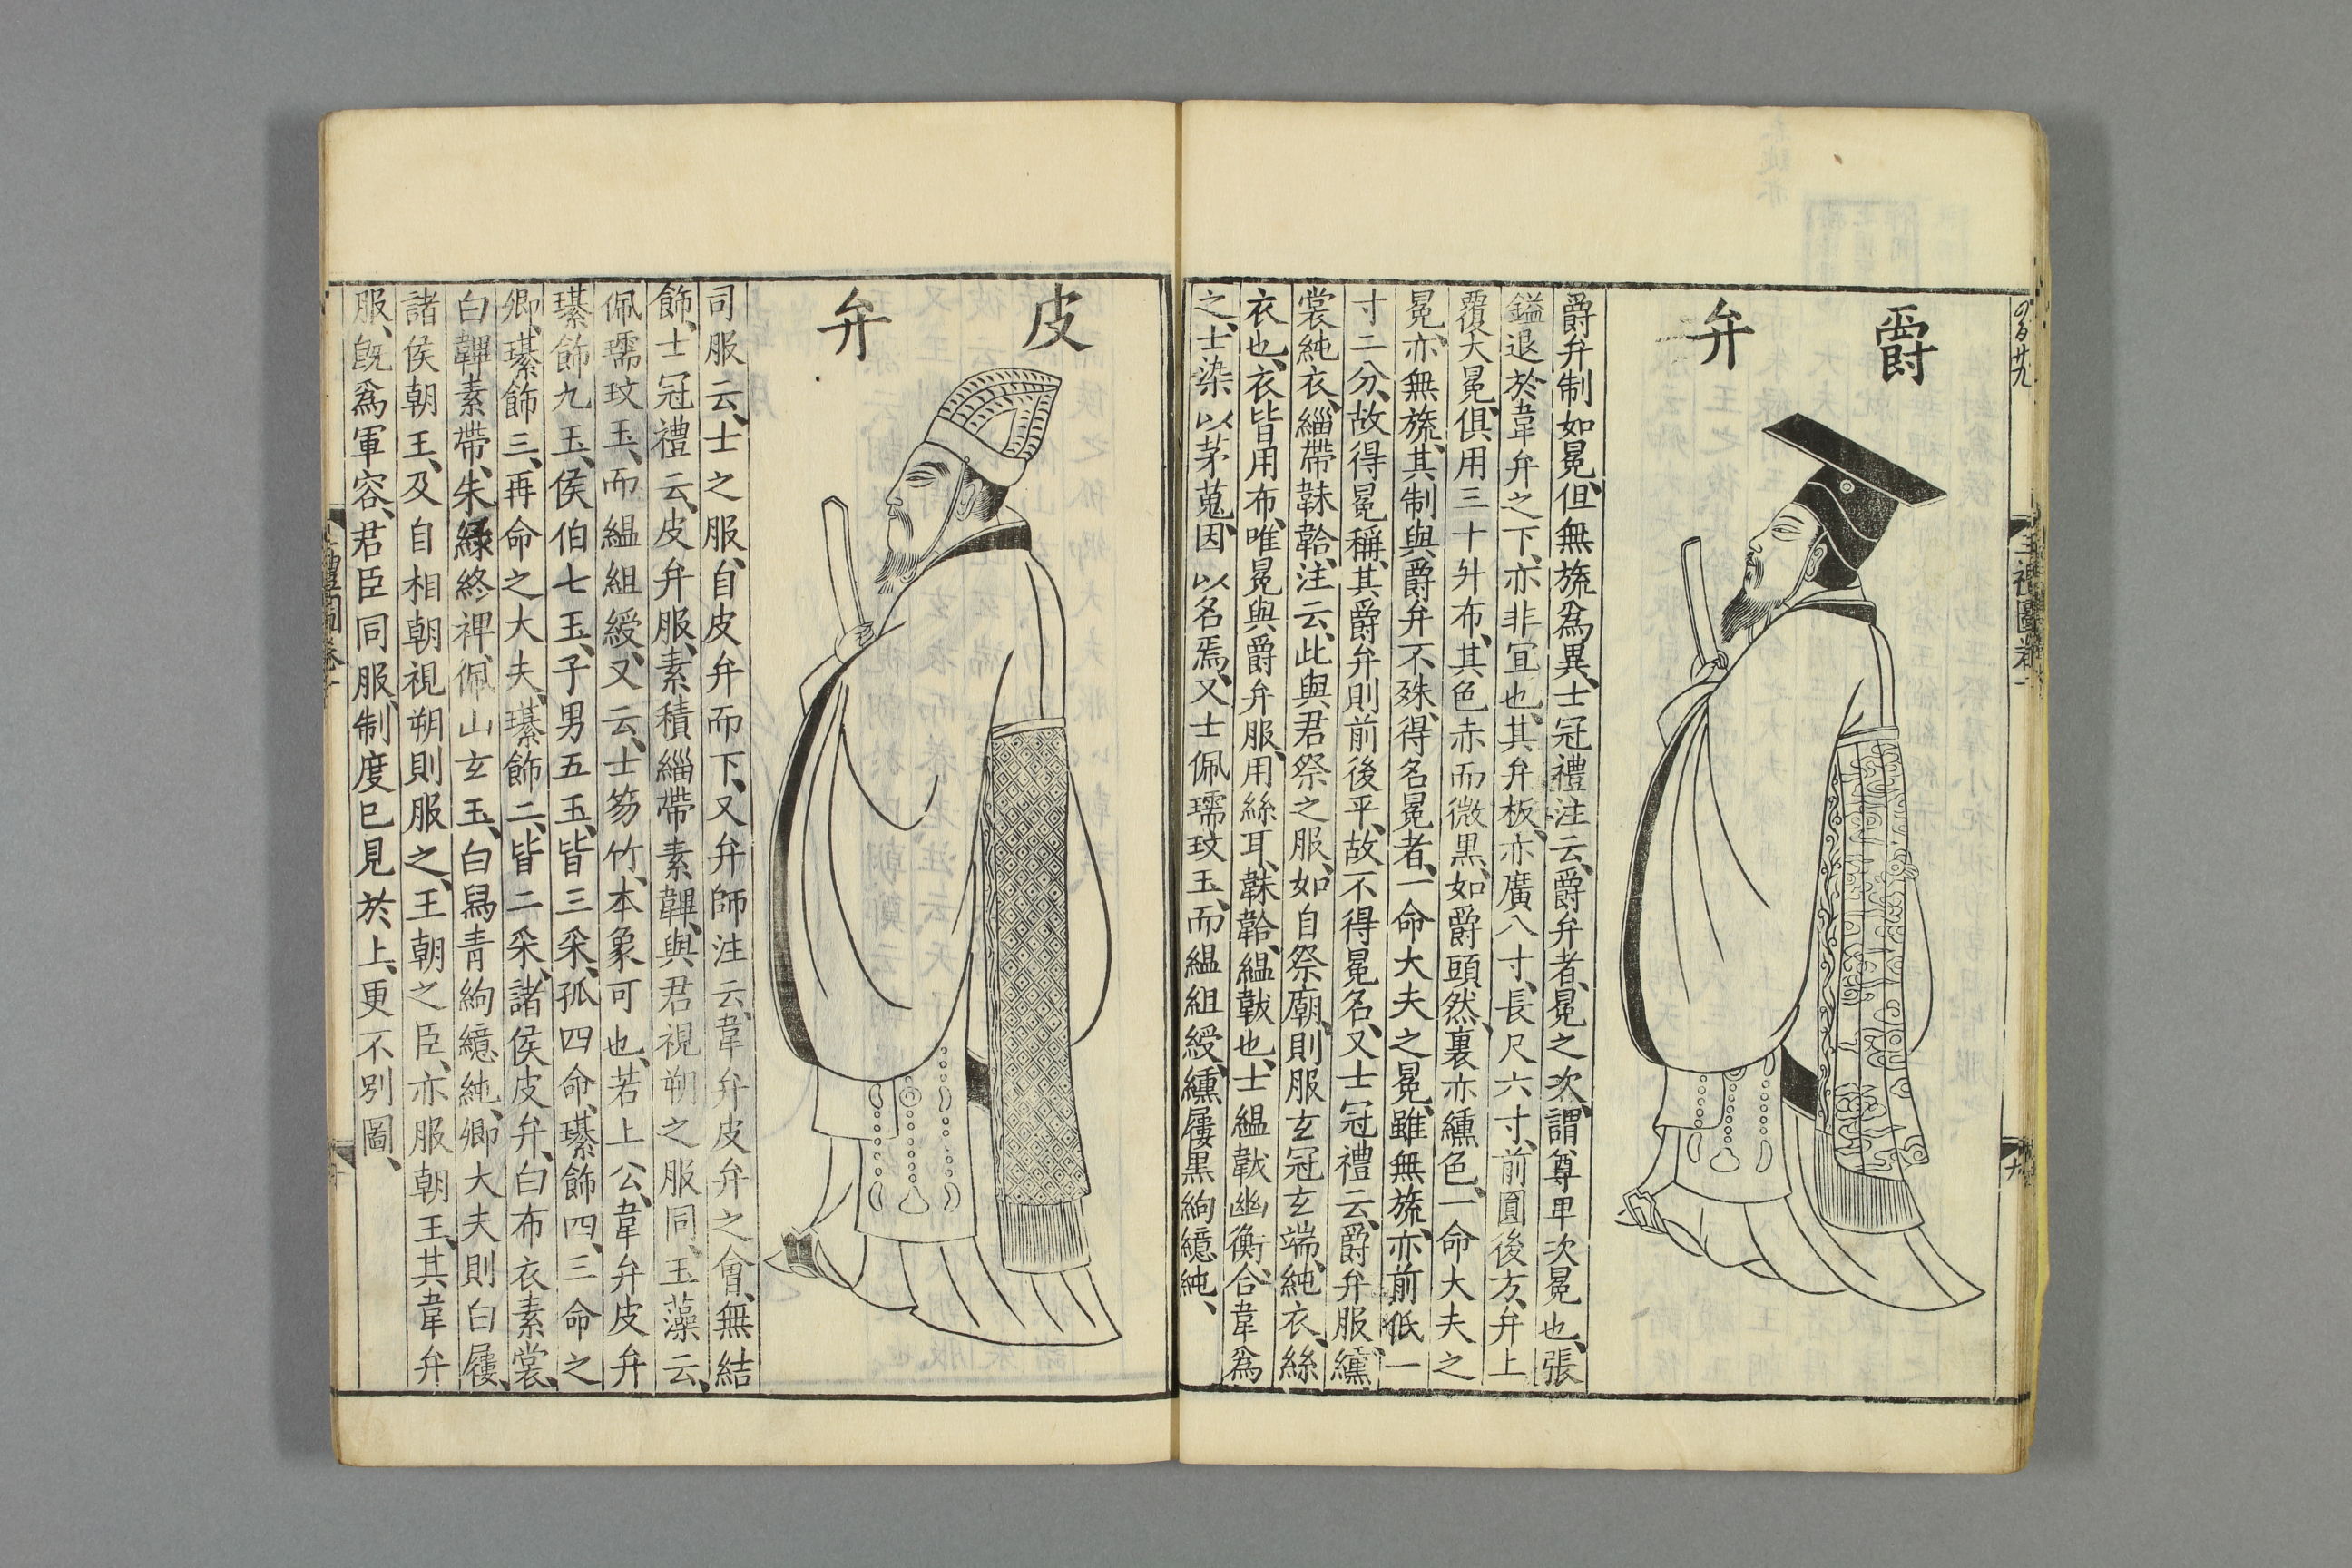 爵弁
爵弁制如冕、但無旒爲異、士冠禮注云、爵弁者、冕之次、謂尊卑次冕也、張
鎰退於韋弁之下、亦非宜也、其弁板、亦廣八寸、長尺六寸、前圓後方、弁上
覆大冕、俱用三十升布、其色赤而微黒、如爵頭然、裏亦纁色、一命大夫之
冕、亦無旒、其制與爵弁不殊、得名冕者、一命大夫之冕、雖無旒、亦前低一
寸二分、故得冕稱、其爵弁則前後平、故不得冕名、又士冠禮云、爵弁服、纁
裳純衣、緇帶韎韐、注云、此與君祭之服、如自祭廟、則服玄冠玄端、純衣、絲
衣也、衣皆用布、唯冕與爵弁服、用絲耳、韎韐、縕韍也、士縕韍幽衡、合韋爲
之、士染以茅蒐、因以名焉、又士佩瓀玟玉、而縕組綬、纁屨黒絇繶純、
皮弁
司服云、士之服、自皮弁而下、又弁師注云、韋弁皮弁之會、無結
飾、士冠禮云、皮弁服、素積緇帶素韠、與君視朔之服同、玉藻云、
佩瓀玟玉、而縕組綬、又云、士笏竹、本象可也、若上公、韋弁皮弁
璂飾九玉、侯伯七玉、子男五玉、皆三采、孤四命、璂飾四、三命之
卿、璂飾三、再命之大夫、璂飾二、皆二采、諸侯皮弁、白布衣素裳、
白韠素帶、朱綠終裨、佩山玄玉、白舄青絇繶純、卿大夫則白屨、
諸侯朝王、及自相朝視朔則服之、王朝之臣、亦服朝王、其韋弁
服、旣爲軍容、君臣同服、制度已見於上、更不別圖、